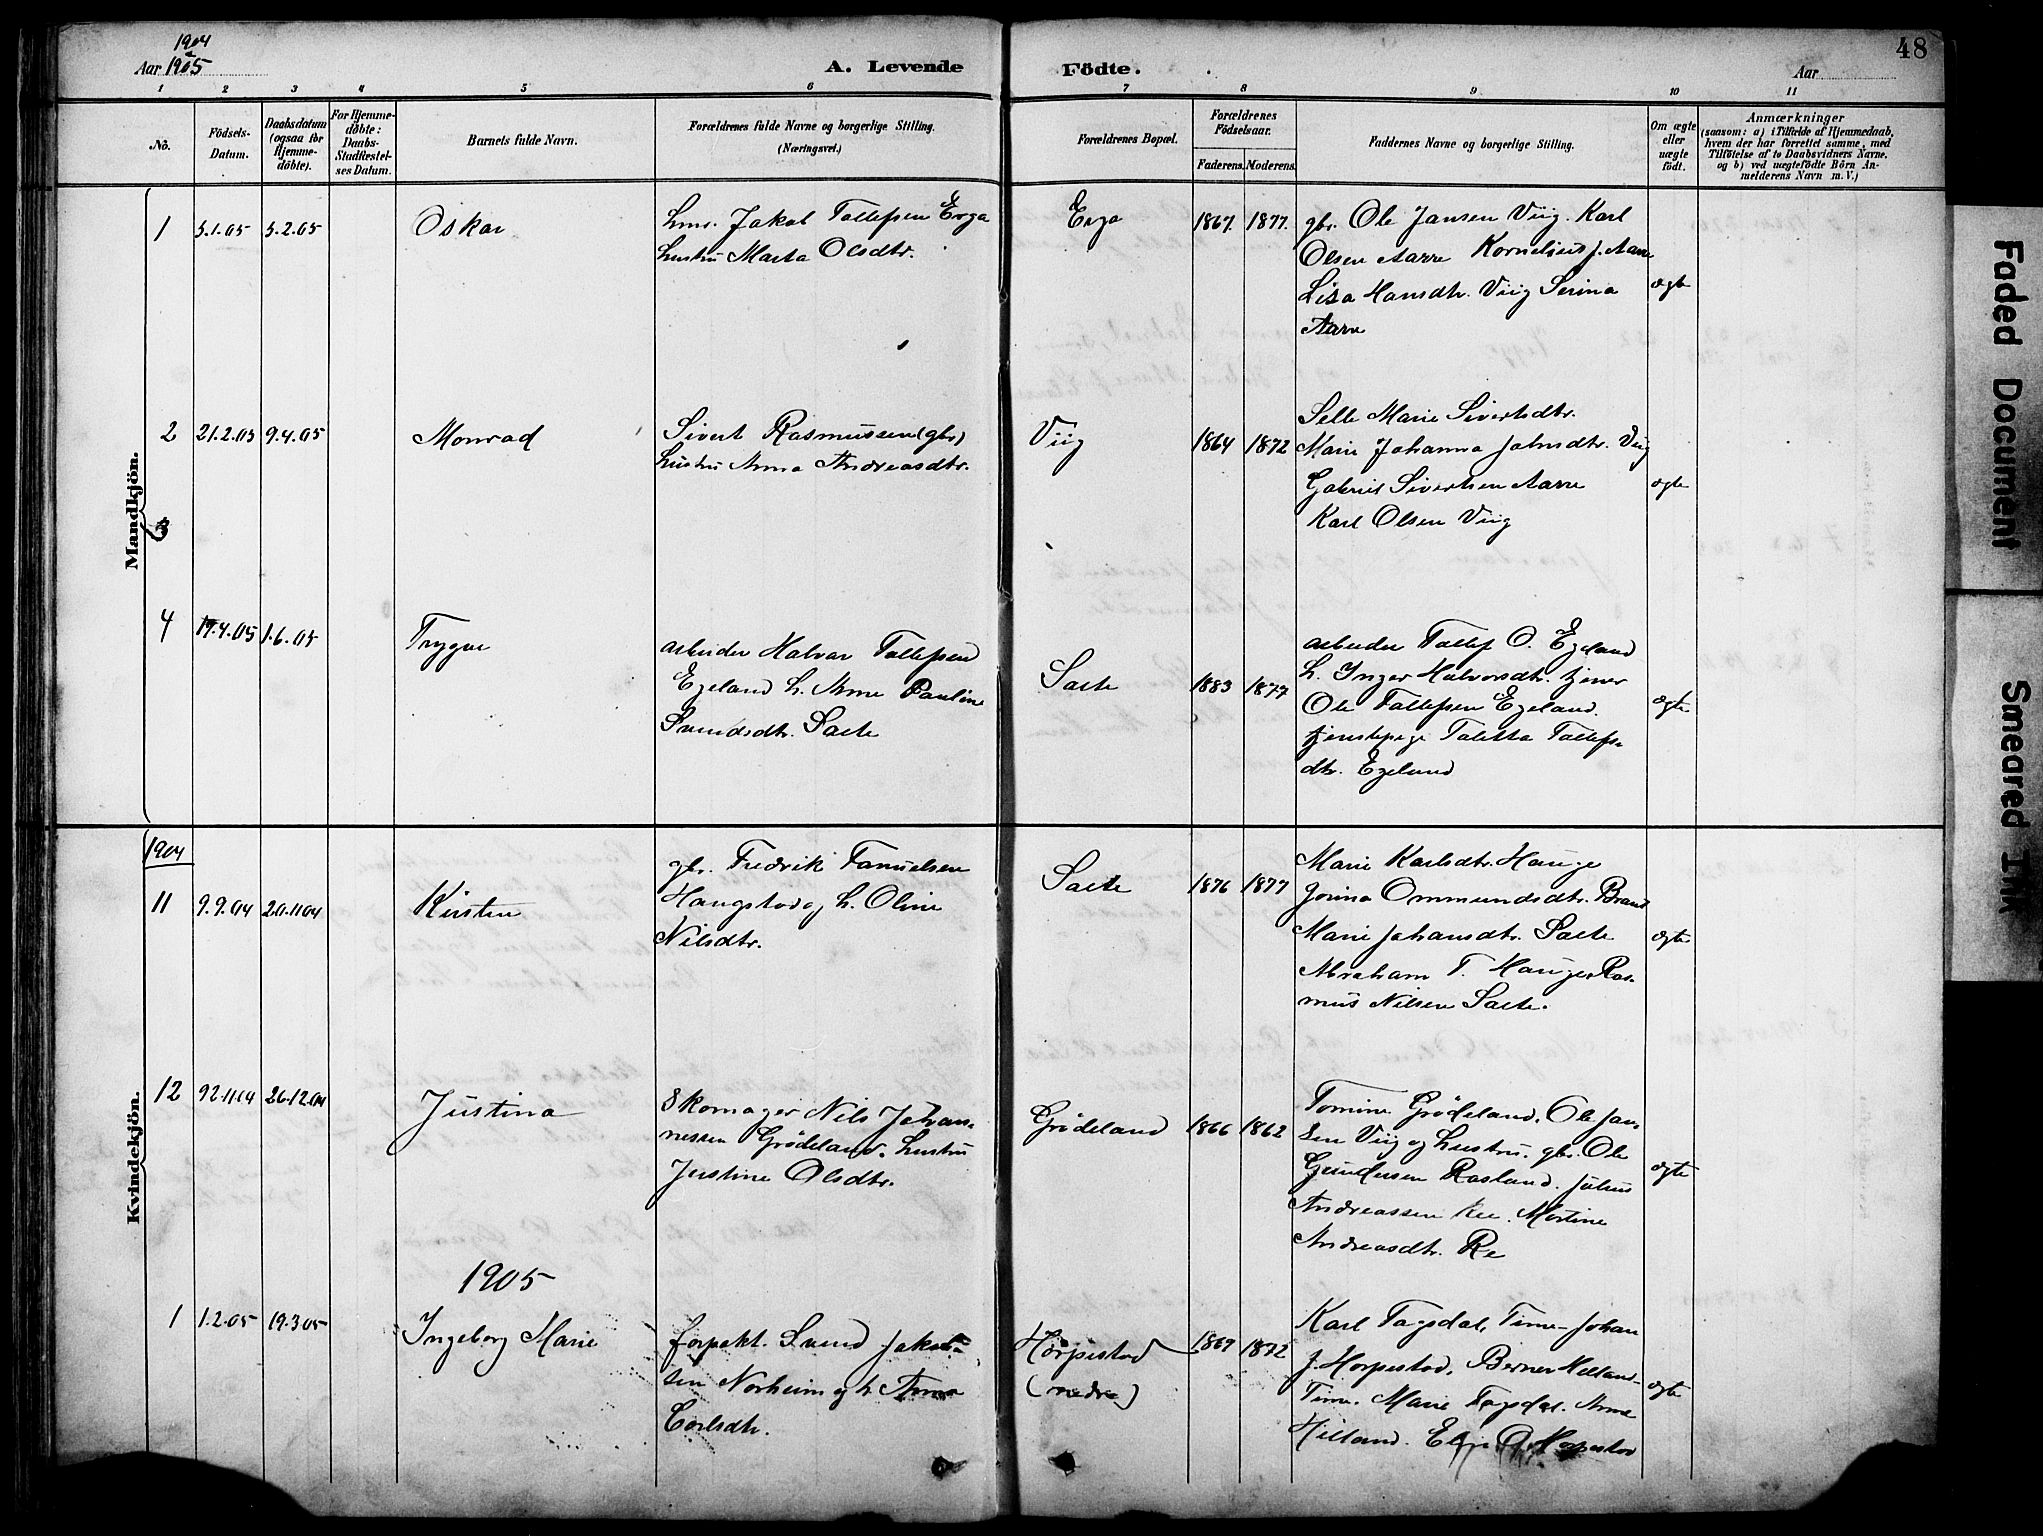 1904
Aar 1905
A. Levende
Födte.
Aar
48
1 2 3 4 5 6 7 8 9 10 11
No.
Födsels-Datum.
Daabsdatum (ogsaa for Hjemme-döbte).
For Hjemme-döbte: Daabs-Stadfæstel-ses Datum.
Barnets fulde Navn.
Forældrenes fulde Navne og borgerlige Stilling.
(Næringsvei.)
Forældrenes Bopæl.
Forældrenes Födselsaar.
Faderens. Moderens.
Faddernes Navne og borgerlige Stilling.
Om ægte eller uægte födt.
Anmærkninger
(saasom: a) i Tilfælde af Hjemmedaab,
hvem der har forrettet samme, med
Tilföielse af to Daabsvidners Navne,
og b) ved uægtefödte Börn An-
melderens Navn m. V.)
Mandkjön.
1 5.1.05 5.2.05 Oskar
Jakob Tollefsen Erga
hustru Marta Olsdtr.
Erga 1867. 1877.
gbr. Ole Jansen Viig. Karl
Olsen Aarre Kornelius J. Aarre
Lisa Hansdtr. Viig Serina
Aarre
ægte
2 21.2.05 9.4.05 Monrad
Sivert Rasmussen (gbr)
hustru Anna Andreasdtr.
Viig 1864 1872
Selle Marie Sivertsdtr.
Marie Johanna Johnsdtr. Viig
Gabriel Sivertsen Aarre
Karl Olsen Viig
ægte
3
4 17.4.05 1.6.05 Trygve
arbeider Halvar Tollefsen
Egeland h. Anne Pauline
Svendsdtr. Salte
Salte 1883 1877
arbeider Tollef O. Egeland
h. Inger Halvorsdtr. tjener
Ole Tollefsen Egeland.
tjenestepige Taletta Tollefs-
dtr. Egeland
ægte
Kvindekjön.
1904
11 9.9.04 20.11.04 Kirsten
gbr. Fredrik
h. Oline
Nilsdtr.
Salte 1876 1877
Marie Karlsdtr. Hauge
Jorina Ommundsdtr.
Marie Johansdtr. Salte
Abraham T. Hauge Ras-
mus Nilsen Salte.
ægte
12 26.12.04 Justina
Skomager Nils Johan-
nessen Grödeland. hustru
Justine Olsdtr.
Grödeland 1866 1862
Tomine Grödeland. Ole Jan-
sen Viig og hustru. gbr. Ole
Gundersen Rosland. Julius
Andreassen Ree. Martine
Andreasdtr. Re
ægte
1905
1 1.2.05 19.3.05 Ingeborg Marie
forpakt. Svend Jakob-
sen Norheim og h. Anna
Carlsdtr.
Hörpestad
(nedre)
1869 1872
Karl Tagsdal, Time - Johan
J. Horpestad, Berner Helland -
Time. Marie Tagsdal. Anne
Helland. Horpestad
ægte
Faded Document
Smeared Ink